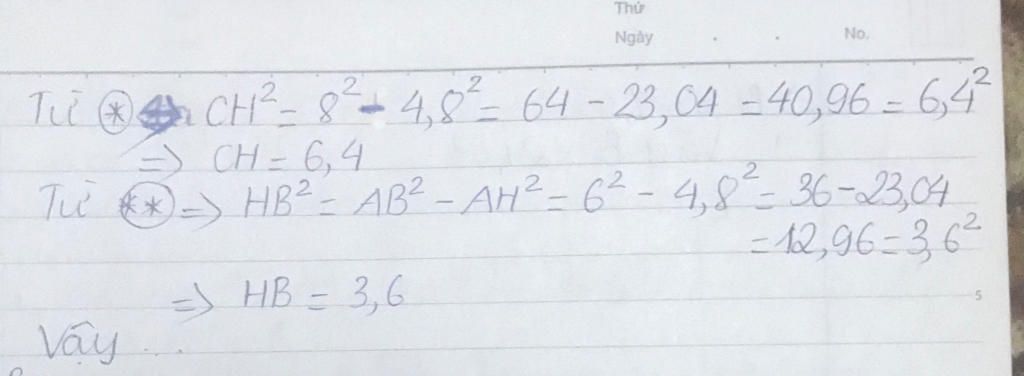 Thứ
Ngày . . No.
Từ (*) CH² = 8² - 4,8² = 64 - 23,04 = 40,96 = 6,4²
=> CH = 6,4
Từ (**) => HB² = AB² - AH² = 6² - 4,8² = 36 - 23,04
= 12,96 = 3,6²
=> HB = 3,6
5
Vậy ...